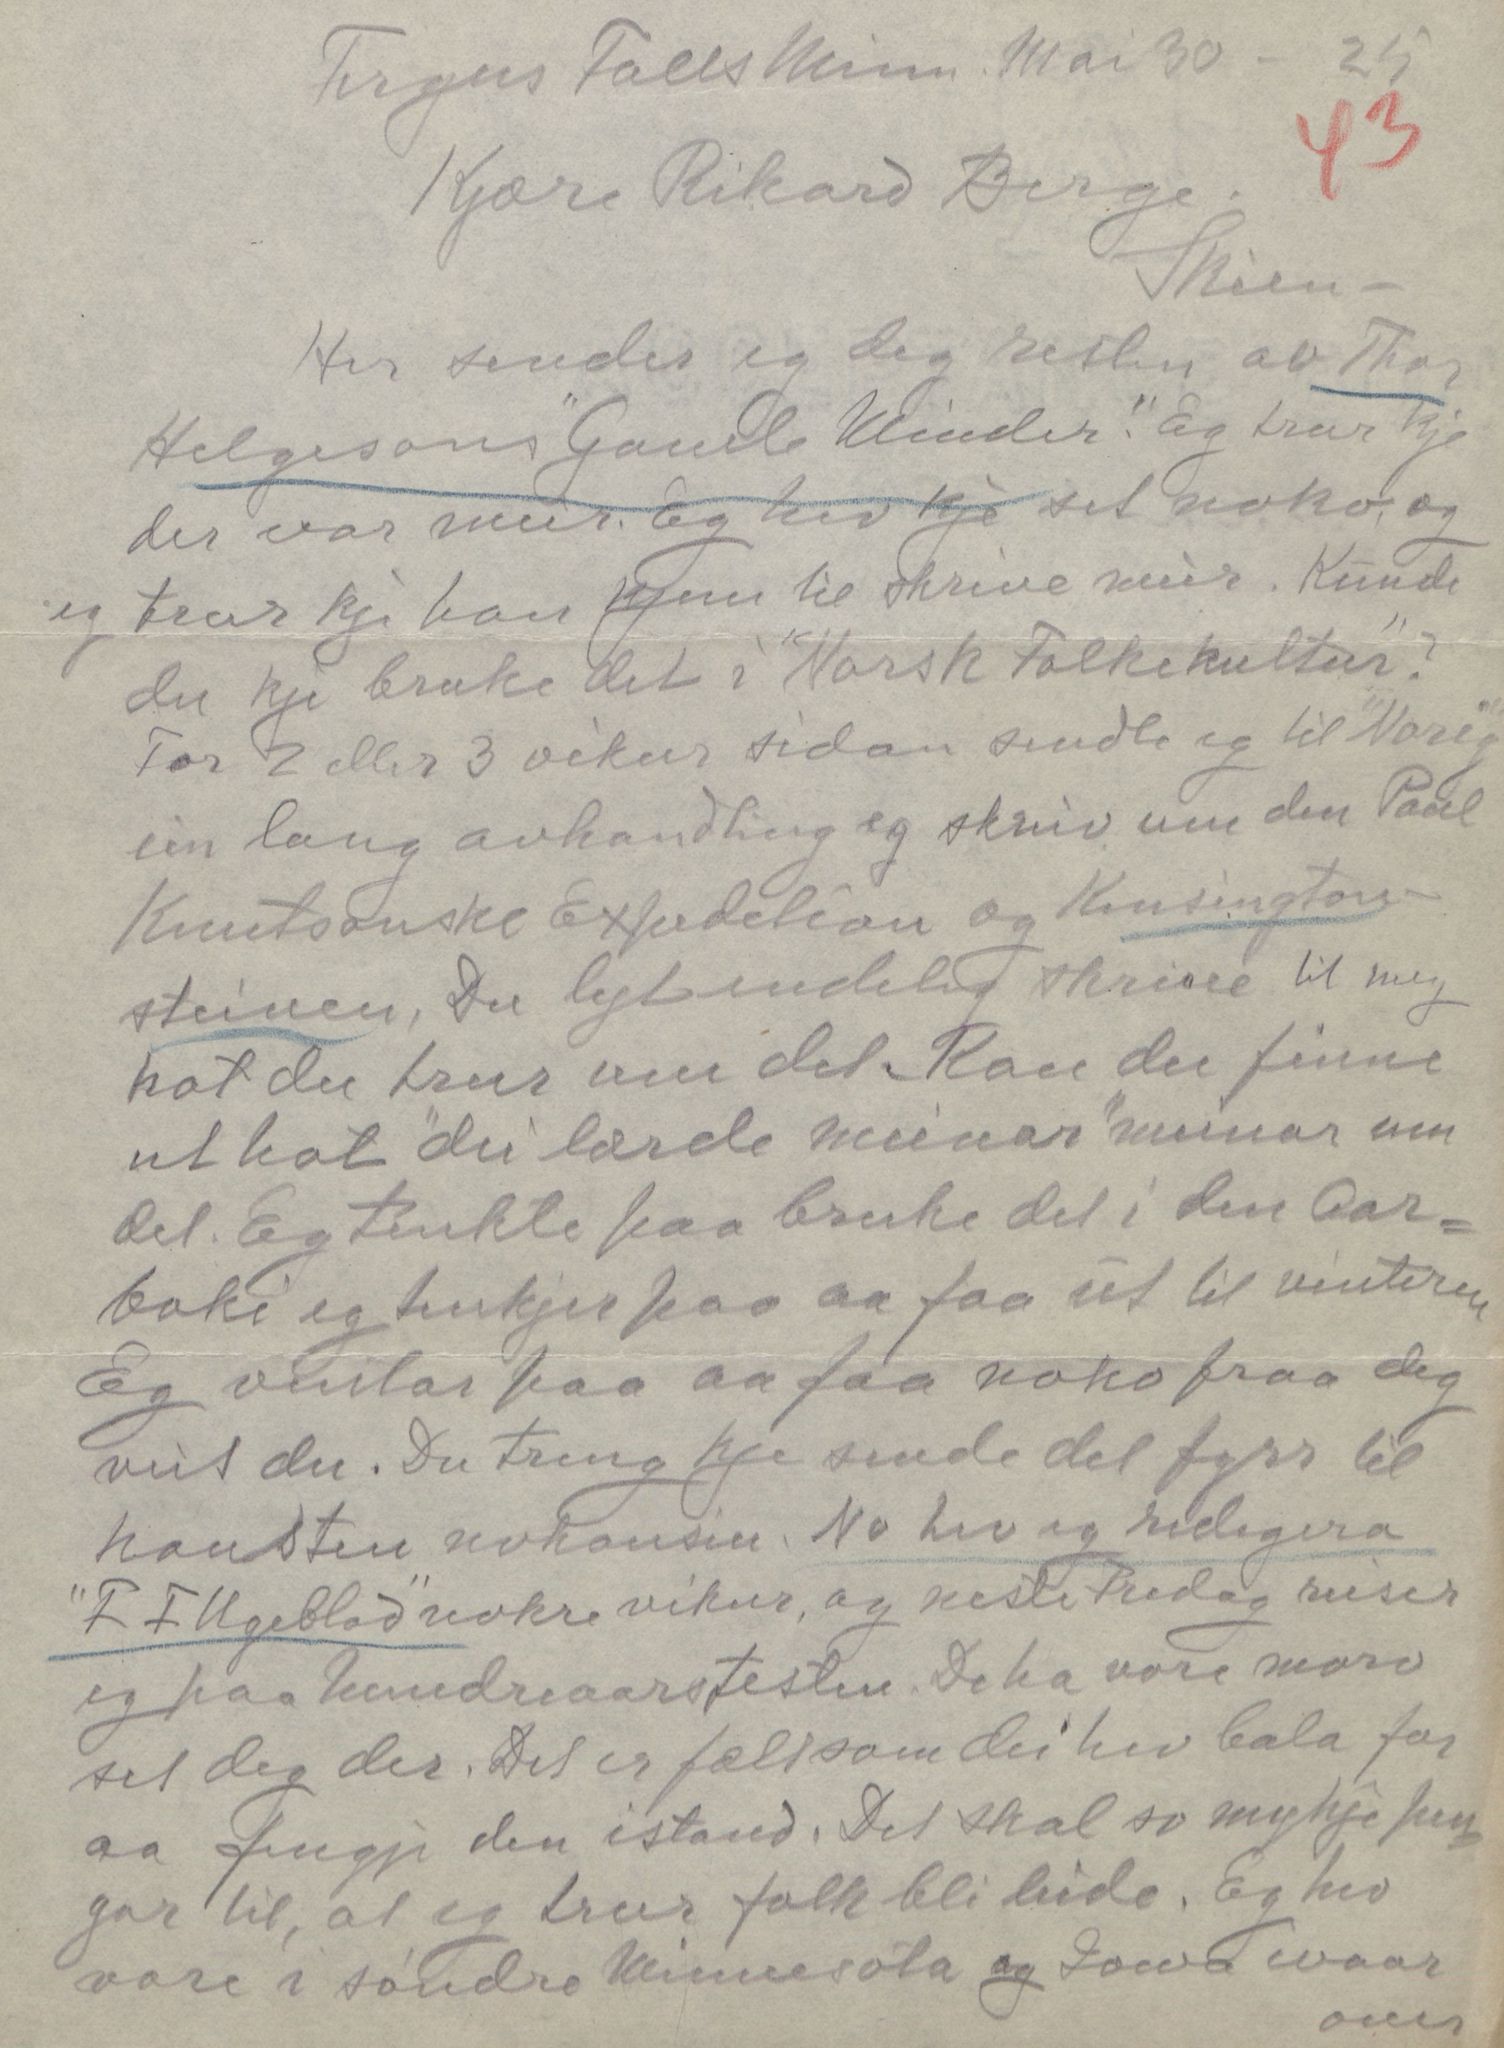 Fergus Falls Minn. Mai 30 - 25
43
Kjære Rikard Berge.
Skien -
Her sender eg deg resten av Thor
Helgesons "Gamle Minder". Eg trur kje
der var meir. Eg hev kje set noko, og
eg trur kje han kjem til skrive meir. Kunde
du kje bruke det i "Norsk Folkekultur"?
For 2 eller 3 vikur sidan sendte eg til "Norig"
ein lang avhandling eg skreiv um den Paul
Knutsonske Expedition og Kensington-
steinen, Du lyt endeleg skrive til meg
hot du trur um det. Kan du finne
ut hot "dei lærde meinar" meinar um
det. Eg tenkte paa bruke det i den Aar=
boki eg tenkjer paa aa faa út til vinteren
Eg ventar paa aa faa noko fraa deg
veit du. Du treng kje sende det fyrr til
hausten nokonsin. No hev eg redigera
"F F Ugeblad" nokre vikur, og neste Fredag reiser
eg paa hundreaarsfesten. De ha vore moro
set deg der. Det er fælt som dei hev bala for
aa fengje den istand. Det skal so mykje pen-
gar til, at eg trur folk bli leide. Eg hev
vore i søndre Minnesota og Iowa ivaar
over